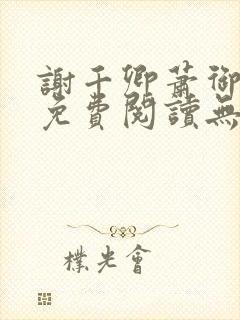 謝千卿蕭御
免費閱讀無
樸光會